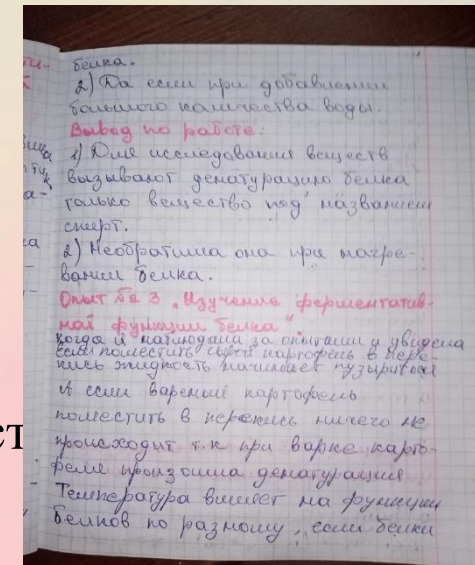 белка.
2) Да если при добавлении
большого количества воды.
Вывод по работе:
1) Для исследования веществ
вызывают денатурацию белка
только вещество под названием
спирт.
2) Необратима она при нагре-
вании белка.
Опыт № 3 „Изучение ферментатив-
ной функции белка"
Когда я наблюдала за опытами я увидела
если поместить сырой картофель в пере-
кись жидкость начинает пузыриться
А если вареный картофель
поместить в перекись ничего не
происходит т.к при варке карто-
феля произошла денатурация
Температура влияет на функции
белков по разному, если белки
ст